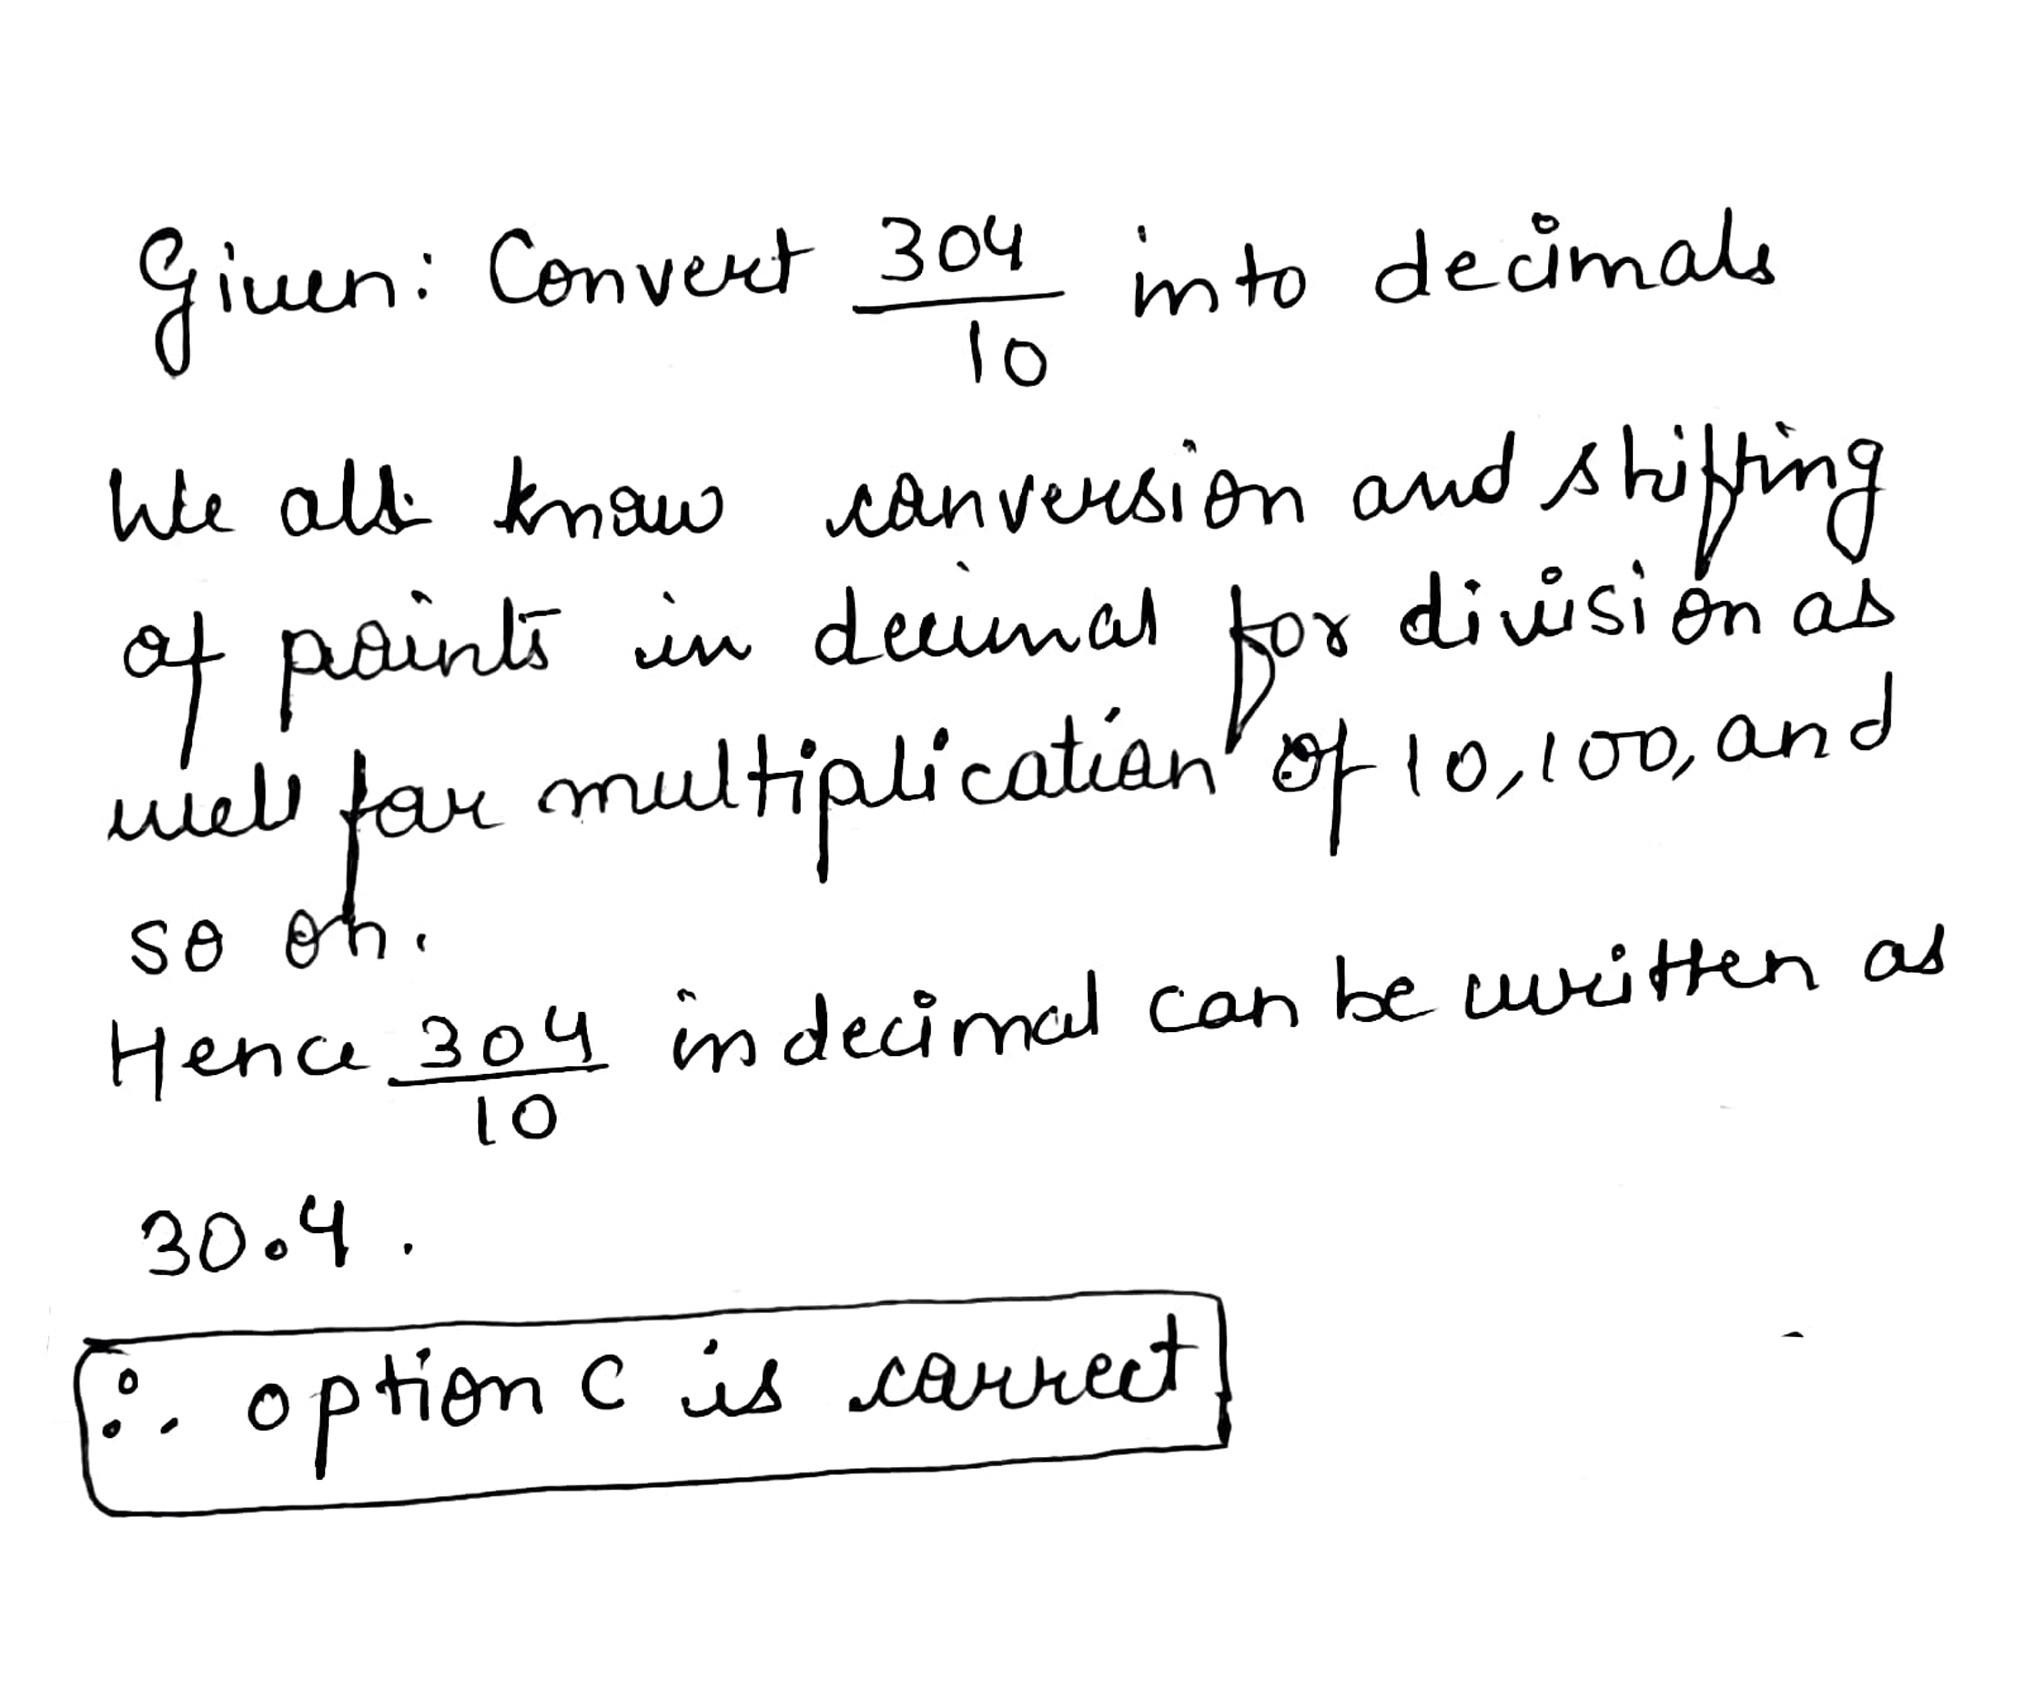 Given: Convert 304/10 into decimals
We all know conversion and shifting
of points in decimal for division as
well for multiplication of 10,100, and
so on.
Hence 304/10 in decimal can be written as
30.4.
∴ option C is correct